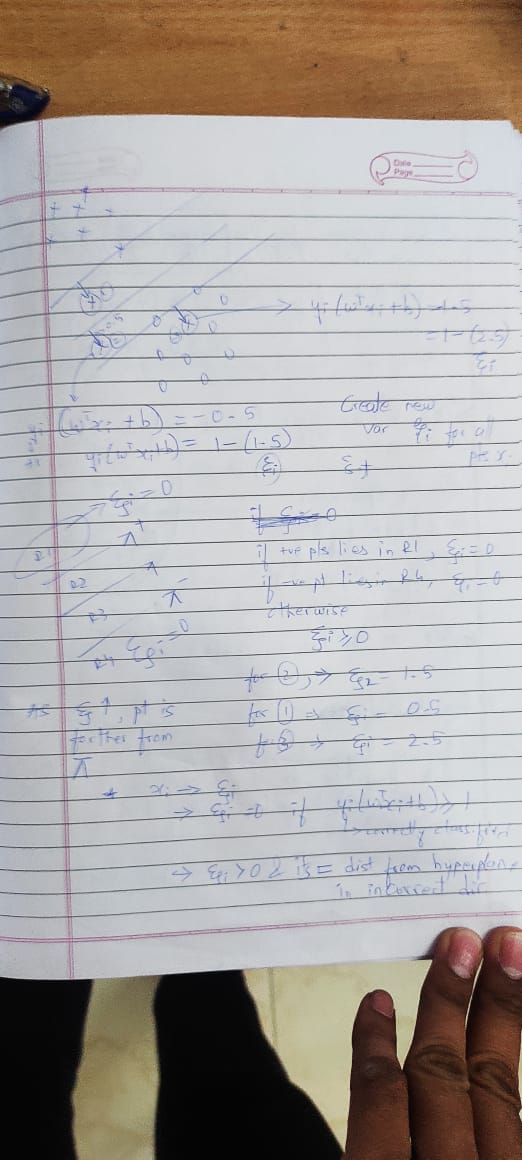 Date
Page
yi (wᵀxi + b) = -1.5
= 1 - (2.5)
ξi
(wᵀxi + b) = -0.5
yi (wᵀxi + b) = 1 - (1.5)
ξi
Create new
var ξi for all
pts x.
ξi = 0
R1
π+
R2
π
R3
π-
R4 ξi = 0
if +ve pts lies in R1, ξi = 0
if -ve pt lies in R4, ξi = 0
otherwise
ξi ≥ 0
for ② ⇒ ξ2 = 1.5
for ① ⇒ ξi = 0.5
for ③ → ξi = 2.5
As ξ ↑, pt is
farther from
π
* xi → ξi
→ ξi = 0 if yi (wᵀxi + b) ≥ 1
↳ correctly classified
→ ξi > 0 & ξi = dist from hyperplane
in incorrect dir